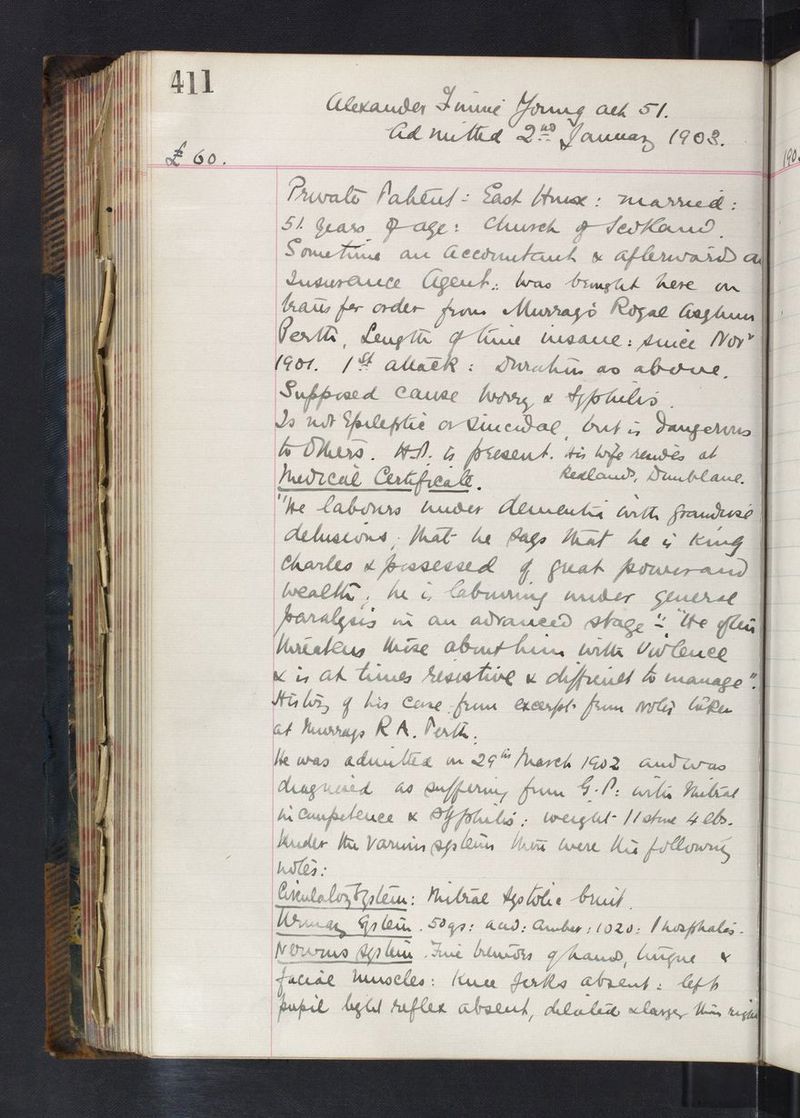 411
Alexander Finnie Young aet 51.
Admitted 2nd January 1903.
£ 60.
190
Private Patient: East House: married:
51 years of age: Church of Scotland.
Sometime an Accountant & afterwards an
Insurance Agent: was brought here on
transfer order from Murray's Royal Asylum
Perth, Length of time insane: since Novr
1901. 1st attack: Duration as above.
Supposed cause Worry & Syphilis.
Is not Epileptic or Suicidal, but is dangerous
to Others. H.P. is present. His wife resides at
Redlands, Dunblane.
Medical Certificate.
"He labours under dementia with grandiose
delusions, that he says that he is King
Charles & possessed of great power and
wealth, he is labouring under general
paralysis in an advanced stage":- "He often
threatens those about him with Violence
& is at times resistive & difficult to manage".
History of his case from excerpts from notes taken
at Murrays R A. Perth.
He was admitted on 29th March 1902 and was
diagnosed as suffering from G.P: with Mitral
incompetence & Syphilis: weight 11 stone 4 lbs.
Under the various systems there were the following
notes:
Circulatory System: Mitral Systolic bruit.
Urinary System. 50 : acid: amber: 1020: Phosphates.
Nervous System. Fine tremors of hands, tongue &
facial muscles: Knee jerks absent: left
pupil light reflex absent, dilated & larger than right